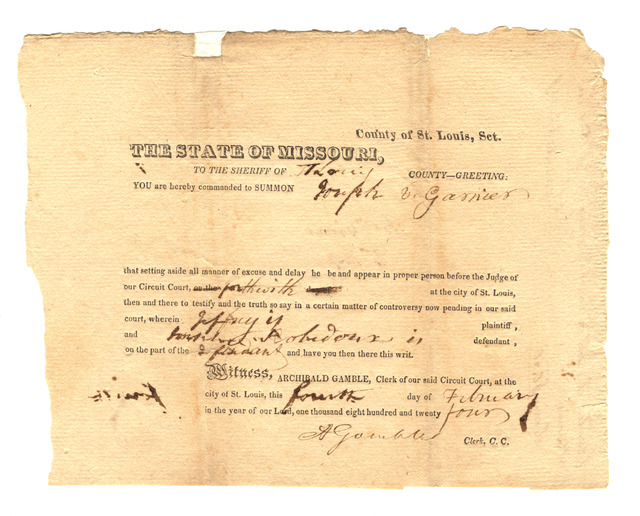 County of St. Louis, Sct.
THE STATE OF MISSOURI,
TO THE SHERIFF OF St Louis COUNTY—GREETING:
YOU are hereby commanded to SUMMON Joseph V. Garnier
that setting aside all manner of excuse and delay he be and appear in proper person before the Judge of
our Circuit Court, on the forthwith at the city of St. Louis,
then and there to testify and the truth so say in a certain matter of controversy now pending in our said
court, wherein Jeffrey is plaintiff,
and Robidoux is defendant,
on the part of the defendant and have you then there this writ.
Witness, ARCHIBALD GAMBLE, Clerk of our said Circuit Court, at the
city of St. Louis, this fourth day of February
in the year of our Lord, one thousand eight hundred and twenty four
A Gamble Clerk, C. C.